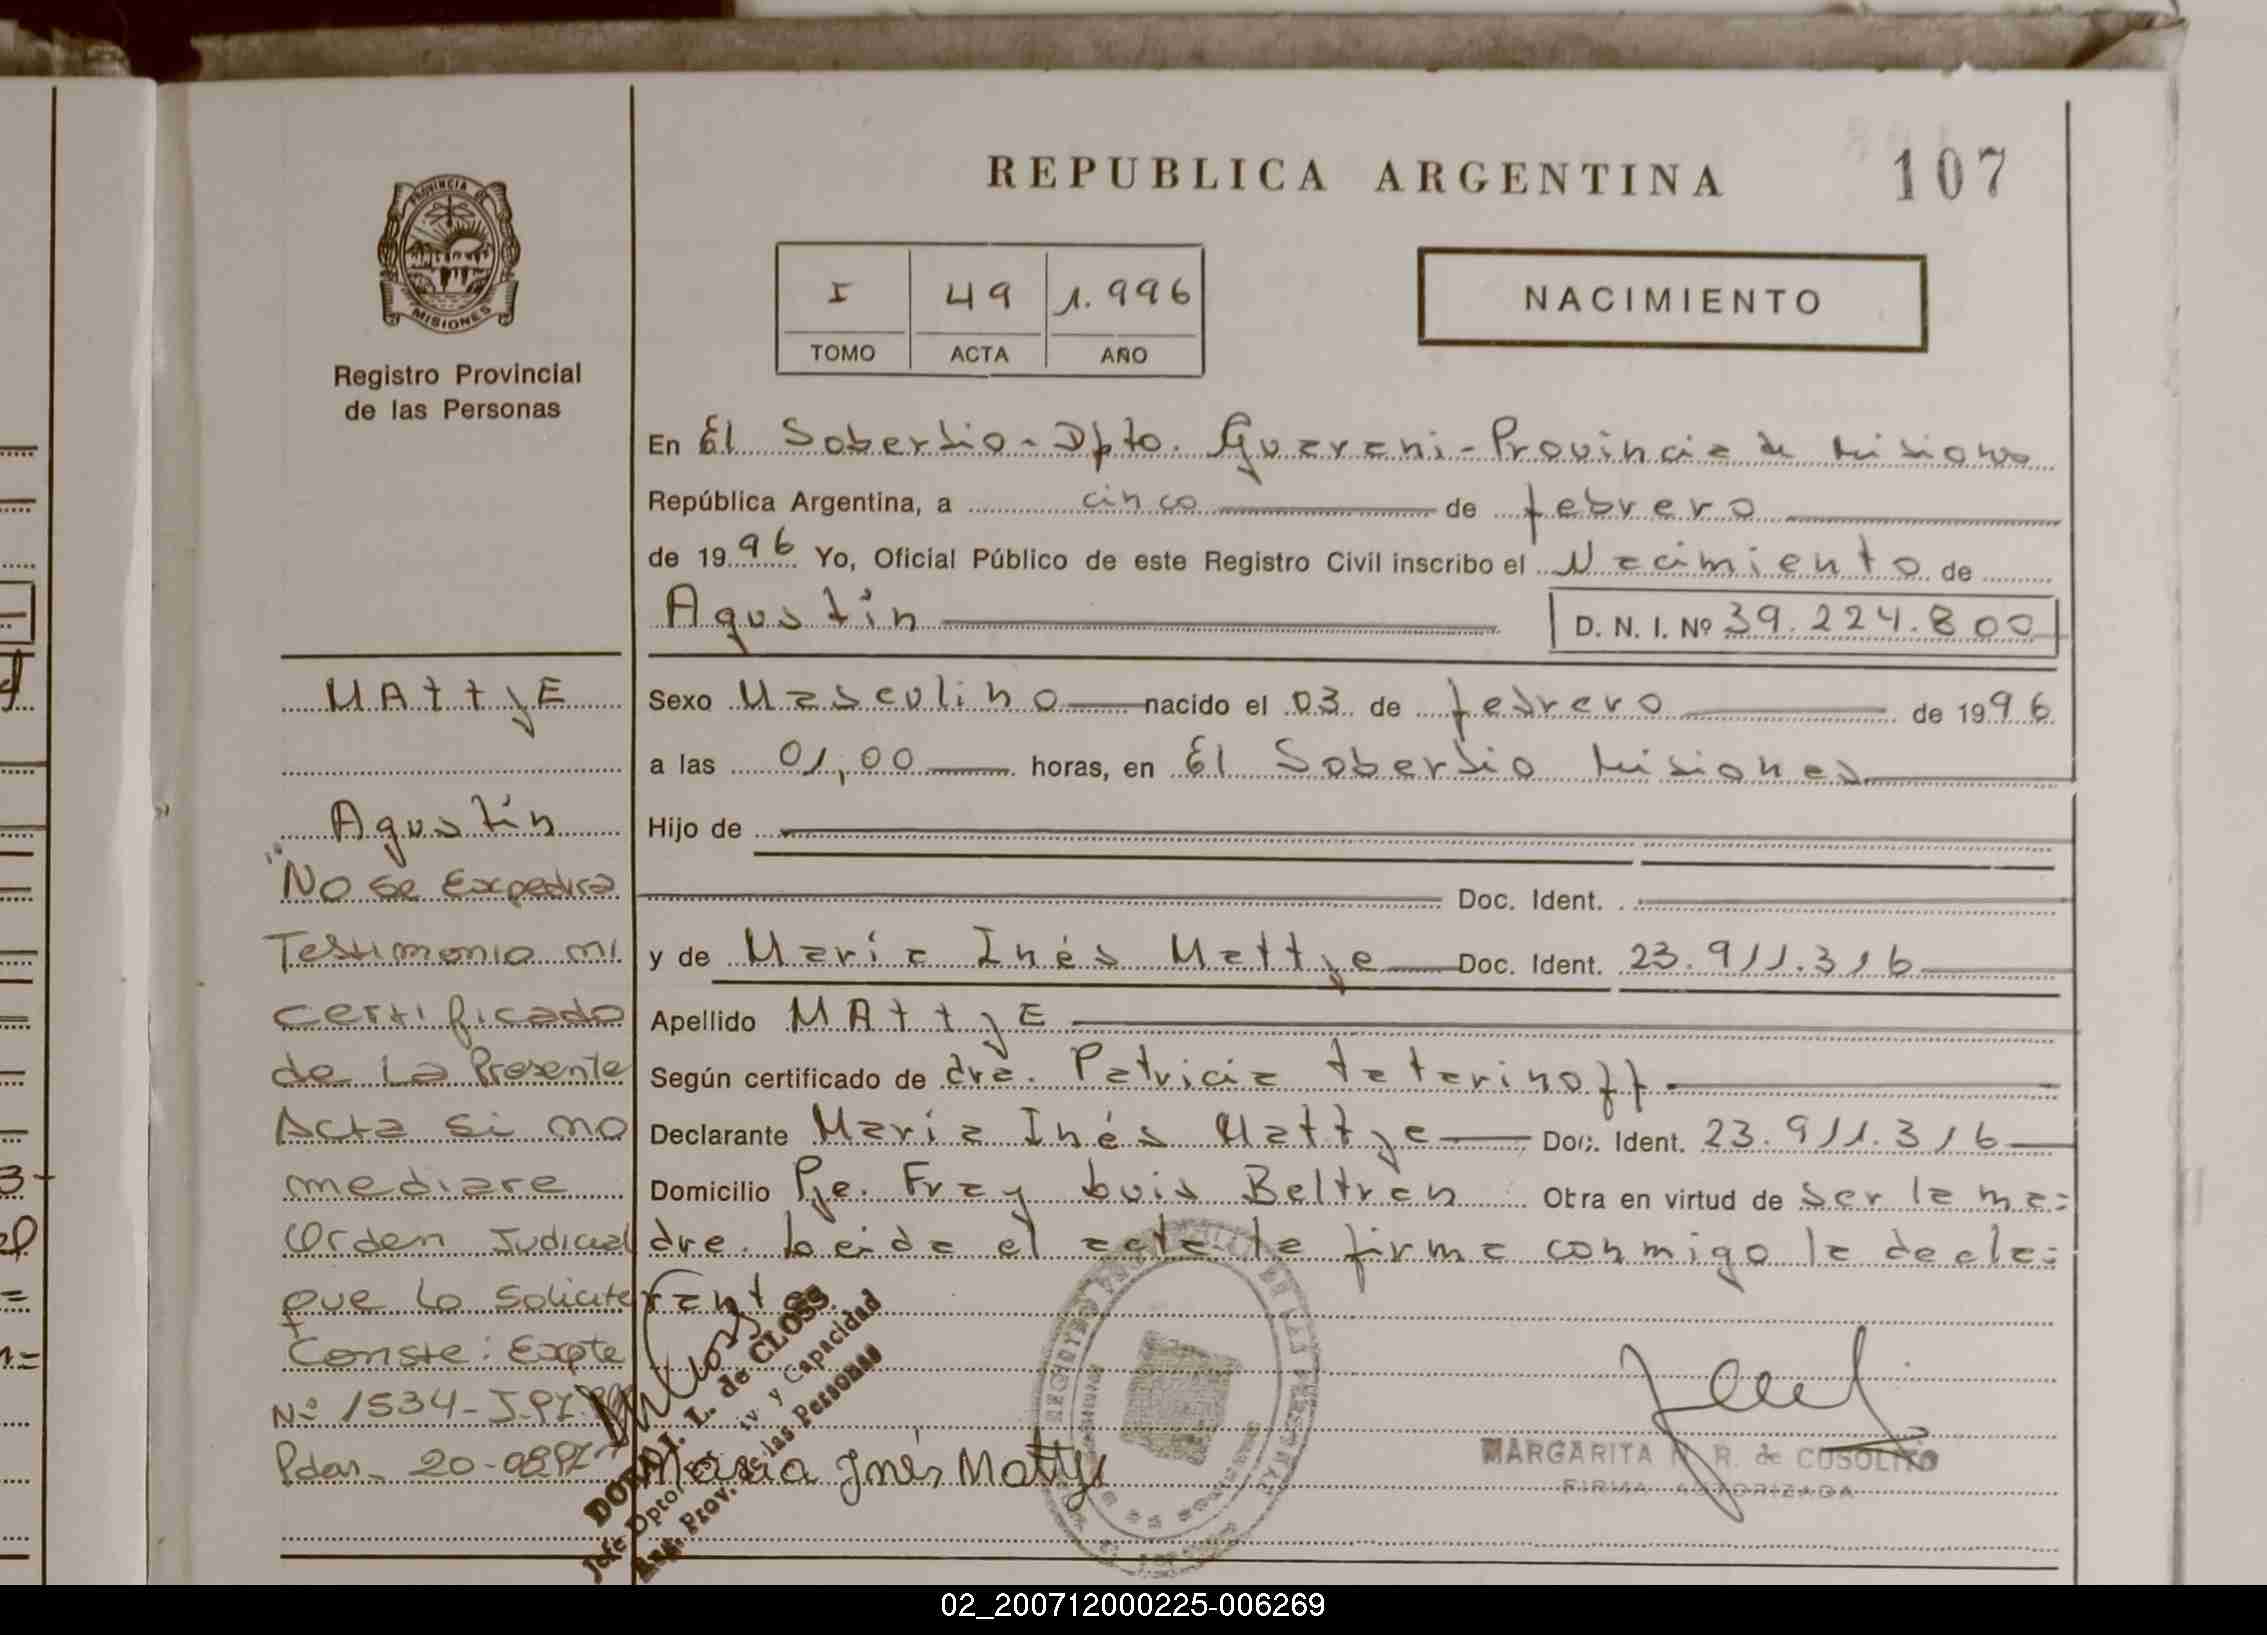 REPUBLICA ARGENTINA
107
PROVINCIA DE
MISIONES
Registro Provincial
de las Personas
I 49 1.996
TOMO ACTA AÑO
NACIMIENTO
En El Soberbio - Dpto. Guarani - Provincia de Misiones
República Argentina, a cinco de febrero
de 1996 Yo, Oficial Público de este Registro Civil inscribo el Nacimiento de
Agustín D. N. I. Nº 39.224.800
Sexo Masculino nacido el 03 de febrero de 1996
a las 01,00 horas, en El Soberbio Misiones
Hijo de
Doc. Ident.
y de María Inés Mattje Doc. Ident. 23.911.316
Apellido MAttjE
Según certificado de dra. Patricia tatarinoff
Declarante María Inés Mattje Doc. Ident. 23.911.316
Domicilio Pje. Fray Luis Beltran Otra en virtud de ser la ma=
dre. Leida el acta la firma conmigo la decla=
rante
MAttjE
Agustín
"No se Expedira
Testimonio ni
certificado
de La Presente
Acta si no
mediare
Orden Judicial
que lo solicite
Conste: Expte
Nº 1534-
Pdas. 20-
DORA I. L. de CLOSS
Jefe Dpto. Civ y Capacidad
Reg. Prov. de las Personas
María Inés Mattje
MARGARITA R. de CUSOLITO
FIRMA AUTORIZADA
02_200712000225-006269